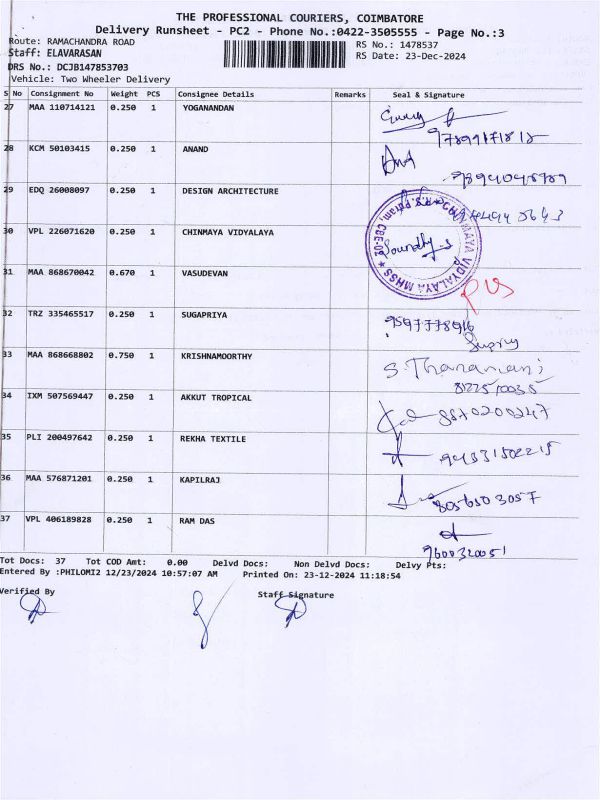 THE PROFESSIONAL COURIERS, COIMBATORE
Delivery Runsheet - PC2 - Phone No.:0422-3505555 - Page No.:3
Route: RAMACHANDRA ROAD
RS No.: 1478537
Staff: ELAVARASAN
RS Date: 23-Dec-2024
DRS No.: DCJB147853703
Vehicle: Two Wheeler Delivery
S No Consignment No Weight PCS Consignee Details Remarks Seal & Signature
27 MAA 110714121 0.250 1 YOGANANDAN
28 KCM 50103415 0.250 1 ANAND
29 EDQ 26008097 0.250 1 DESIGN ARCHITECTURE
30 VPL 226071620 0.250 1 CHINMAYA VIDYALAYA
CHINMAYA VIDYALAYA MHSS
31 MAA 868670042 0.670 1 VASUDEVAN
32 TRZ 335465517 0.250 1 SUGAPRIYA 9597778916
33 MAA 868668802 0.750 1 KRISHNAMOORTHY S. Tharamani
8122510035
34 IXM 507569447 0.250 1 AKKUT TROPICAL 8870200247
35 PLI 200497642 0.250 1 REKHA TEXTILE
36 MAA 576871201 0.250 1 KAPILRAJ 8056503057
37 VPL 406189828 0.250 1 RAM DAS
9600320051
Tot Docs: 37 Tot COD Amt: 0.00 Delvd Docs: Non Delvd Docs: Delvy Pts:
Entered By :PHILOMI2 12/23/2024 10:57:07 AM Printed On: 23-12-2024 11:18:54
Verified By Staff Signature